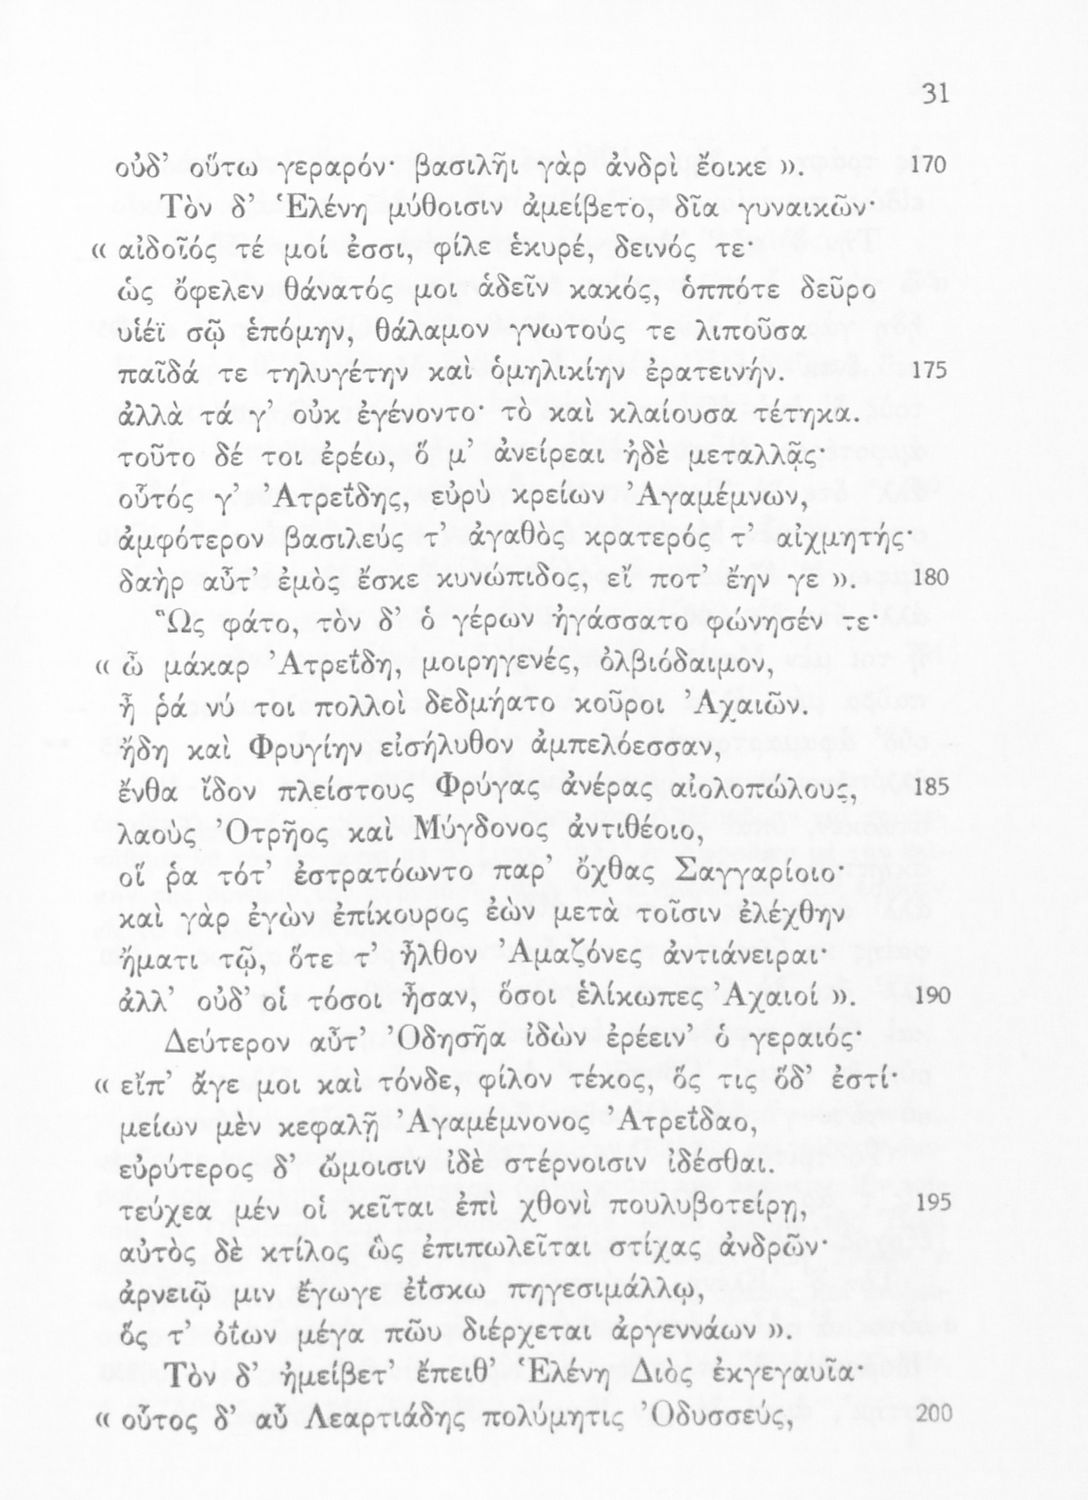 31
οὐδ’ οὕτω γεραρόν· βασιλῆι γὰρ ἀνδρὶ ἔοικε ». 170
Τὸν δ’ Ἑλένη μύθοισιν ἀμείβετο, δῖα γυναικῶν·
« αἰδοῖός τέ μοί ἐσσι, φίλε ἑκυρέ, δεινός τε·
ὡς ὄφελεν θάνατός μοι ἁδεῖν κακός, ὁππότε δεῦρο
υἱέϊ σῷ ἑπόμην, θάλαμον γνωτούς τε λιποῦσα
παῖδά τε τηλυγέτην καὶ ὁμηλικίην ἐρατεινήν. 175
ἀλλὰ τά γ’ οὐκ ἐγένοντο· τὸ καὶ κλαίουσα τέτηκα.
τοῦτο δέ τοι ἐρέω, ὅ μ’ ἀνείρεαι ἠδὲ μεταλλᾷς·
οὗτός γ’ Ἀτρεΐδης, εὐρὺ κρείων Ἀγαμέμνων,
ἀμφότερον βασιλεύς τ’ ἀγαθὸς κρατερός τ’ αἰχμητής·
δαὴρ αὖτ’ ἐμὸς ἔσκε κυνώπιδος, εἴ ποτ’ ἔην γε ». 180
Ὣς φάτο, τὸν δ’ ὁ γέρων ἠγάσσατο φώνησέν τε·
« ὦ μάκαρ Ἀτρεΐδη, μοιρηγενές, ὀλβιόδαιμον,
ἦ ῥά νύ τοι πολλοὶ δεδμήατο κοῦροι Ἀχαιῶν.
ἤδη καὶ Φρυγίην εἰσήλυθον ἀμπελόεσσαν,
ἔνθα ἴδον πλείστους Φρύγας ἀνέρας αἰολοπώλους, 185
λαοὺς Ὀτρῆος καὶ Μύγδονος ἀντιθέοιο,
οἵ ῥα τότ’ ἐστρατόωντο παρ’ ὄχθας Σαγγαρίοιο·
καὶ γὰρ ἐγὼν ἐπίκουρος ἐὼν μετὰ τοῖσιν ἐλέχθην
ἤματι τῷ, ὅτε τ’ ἦλθον Ἀμαζόνες ἀντιάνειραι·
ἀλλ’ οὐδ’ οἱ τόσοι ἦσαν, ὅσοι ἑλίκωπες Ἀχαιοί ». 190
Δεύτερον αὖτ’ Ὀδησῆα ἰδὼν ἐρέειν’ ὁ γεραιός·
« εἴπ’ ἄγε μοι καὶ τόνδε, φίλον τέκος, ὅς τις ὅδ’ ἐστί·
μείων μὲν κεφαλῇ Ἀγαμέμνονος Ἀτρεΐδαο,
εὐρύτερος δ’ ὤμοισιν ἰδὲ στέρνοισιν ἰδέσθαι.
τεύχεα μέν οἱ κεῖται ἐπὶ χθονὶ πουλυβοτείρῃ, 195
αὐτὸς δὲ κτίλος ὣς ἐπιπωλεῖται στίχας ἀνδρῶν·
ἀρνειῷ μιν ἔγωγε ἐΐσκω πηγεσιμάλλῳ,
ὅς τ’ ὀΐων μέγα πῶυ διέρχεται ἀργεννάων ».
Τὸν δ’ ἠμείβετ’ ἔπειθ’ Ἑλένη Διὸς ἐκγεγαυῖα·
« οὗτος δ’ αὖ Λεαρτιάδης πολύμητις Ὀδυσσεύς, 200